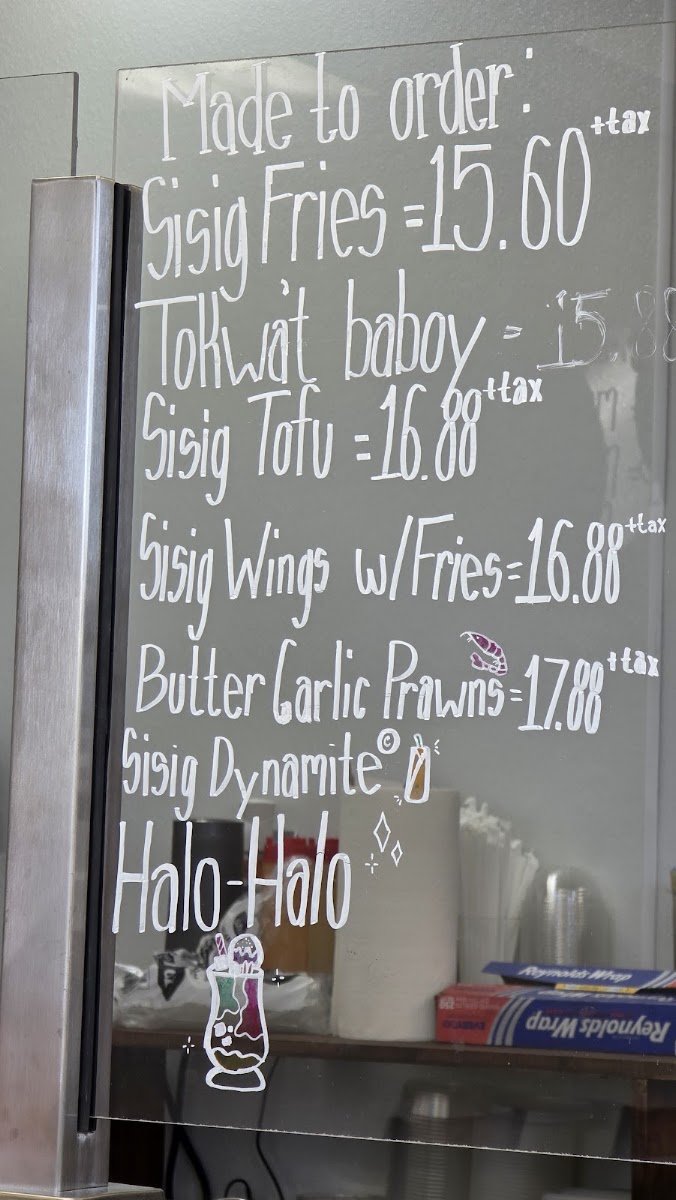 Made to order:
Sisig Fries =15.60 +tax
Tokwa't baboy = 15.88
+tax
Sisig Tofu =16.88
Sisig Wings w/Fries=16.88 +tax
Butter Garlic Prawns=17.88 +tax
Sisig Dynamite©
Halo-Halo
Reynolds Wrap
EVERYDAY
Reynolds Wrap